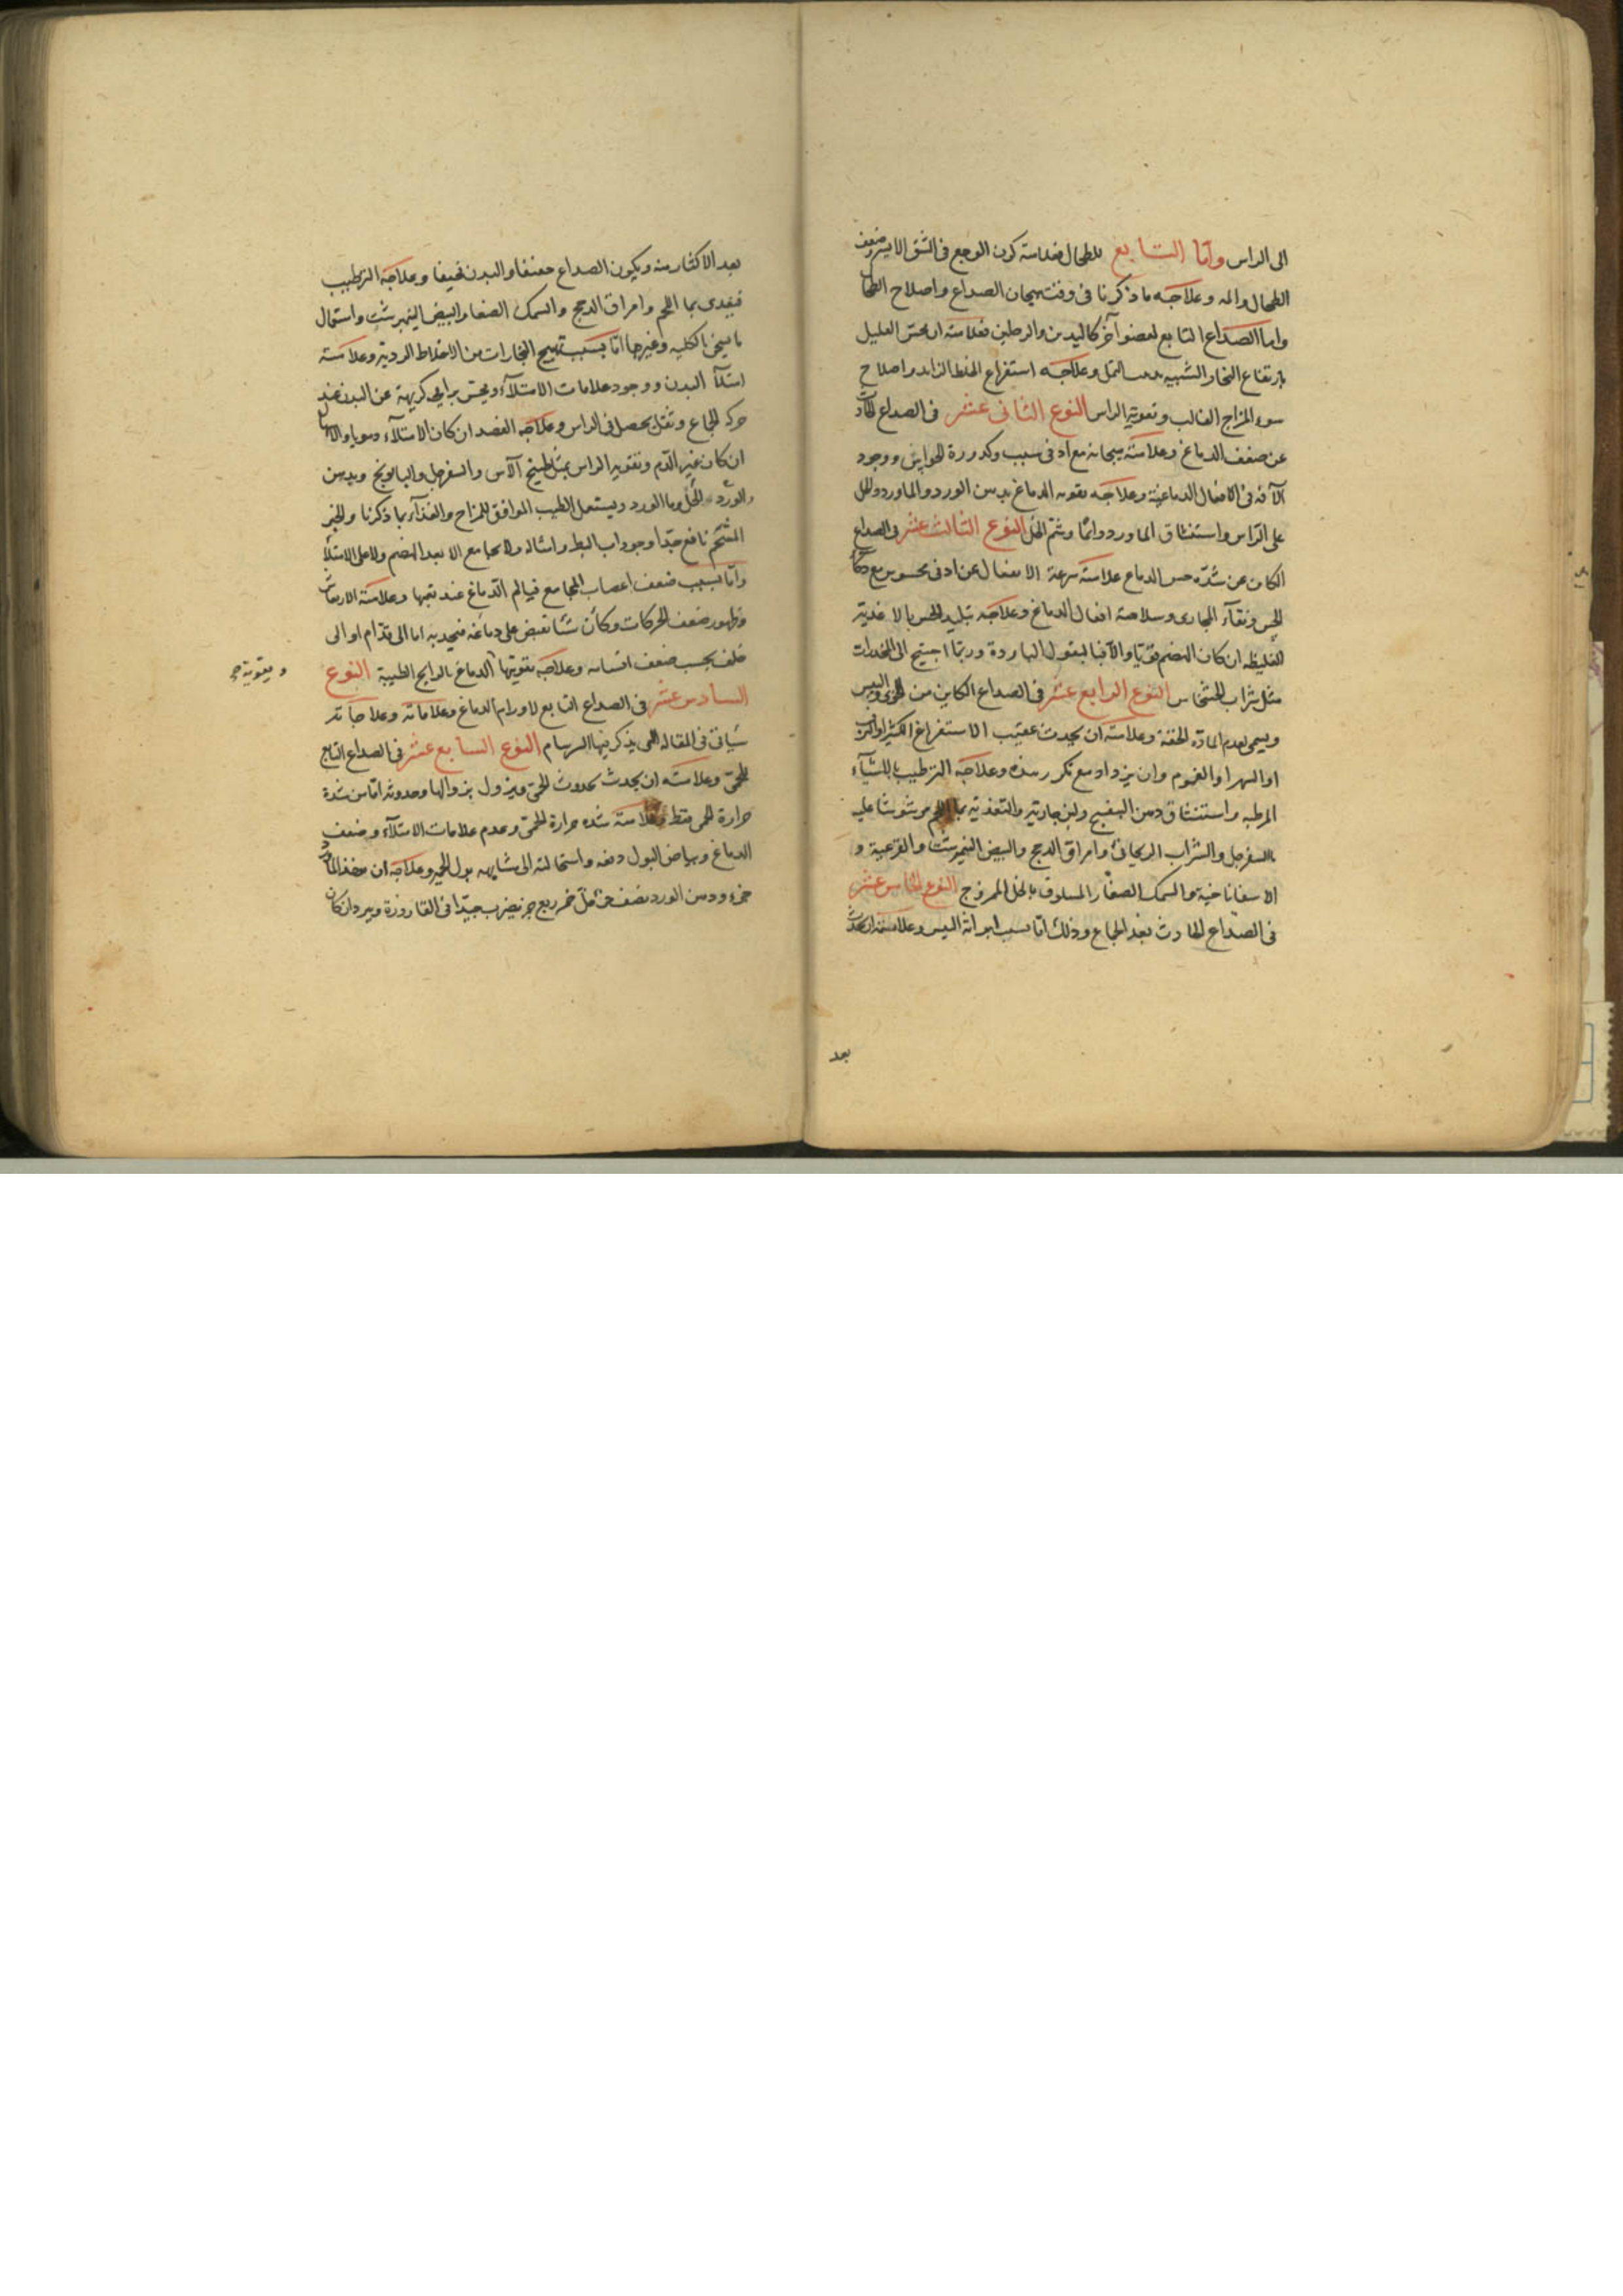 الى الراس واما التابع للطحال فعلامته كون الوجع فى الشق الايسر وضعف
الطحال والمه وعلاجه ما ذكرنا فى وقت هيجان الصداع واصلاح الطحال
واما الصداع التابع لعضو آخر كاليدين والرجلين فعلامته ان يحس العليل
بارتفاع البخار الشبيه بدبيب النمل وعلاجه استفراغ الخلط الزايد واصلاح
سوء المزاج الغالب وتقوية الراس النوع الثانى عشر فى الصداع الحادث
عن ضعف الدماغ وعلامته هيجانه مع ادنى سبب وكدورة الحواس ووجود
الآفة فى الافعال الدماغية وعلاجه تقوية الدماغ بدهن الورد والماورد والخل
على الراس واستنشاق الماورد دائما وشم الخل النوع الثالث عشر فى الصداع
الكاين عن شدة حس الدماغ علامته سرعة الانفعال عن ادنى محسوس مع ذكاء
الحس ونقآء المجارى وسلامة افعال الدماغ وعلاجه تبليد الحس بالاغذية
الغليظه ان كان الهضم قويا والا فبالبقول الباردة وربما احتيج الى المخدرات
مثل شراب الخشخاش النوع الرابع عشر فى الصداع الكاين من الخوى واليبس
ويسمى بعدم المادة الخفة وعلامته ان يحدث عقيب الاستفراغ الكثير او النزف
او السهر او الغموم وان يزداد مع تكررهذه وعلاجه الترطيب بالاشيآء
المرطبه واستنشاق دهن البنفسج ولبن جارية والتغذيه بماء اللحم مرشوشا عليه
السفرجل والشراب الريحانى وامراق الدجج والبيض النيمرشت والقرعية و
الاسفاناخية والسمك الصغار المسلوق بالخل الممزوج النوع الخامس عشر
فى الصداع الحادث بعد الجماع وذلك اما بسبب ايراثه اليبس وعلامته ان يحدث
بعد
بعد الاكثار منه ويكون الصداع معنفا والبدن نحيفا وعلاجه الترطيب
فيغدى بما اللحم وامراق الدجج والسمك الصغار والبيض النيمبرشت واستعمال
ما يسخن الكليه وغيرها اما بسبب تهييج البخارات من الاخلاط الردية وعلامته
امتلآ البدن ووجود علامات الامتلآء ويحس برايحة كريهة عن البدن عند
حركه الجماع وثقل يحصل فى الراس وعلاجه الفصد ان كان الامتلآء دمويا والاسهال
ان كان غير الدم وتقوية الراس بمثل طبيخ الآس والسفرجل والبابونج وبدهن
الورد والخل وما الورد ويستعمل الطيب الموافق للمزاج والغذآء بما ذكرنا والخبز
المشحم نافع جدا وجوداب البط وامثاله ولا يجامع الا بعد الهضم ولا على الامتلآء
واما بسبب ضعف اعصاب المجامع فيالم الدماغ عند تعبها وعلامته الارتعاش
وظهور ضعف الحركات وكأن شيا يقبض على دماغه فيجد به اما الى قدام او الى
خلف بحسب ضعف اقسامه وعلاجه تقويتها الدماغ بالروايح الطيبة النوع
وبتقوية صح
السادس عشر فى الصداع التابع لاورام الدماغ وعلاماته وعلاجاته
سياتى فى المقاله التى يذكر فيها السرسام النوع السابع عشر فى الصداع التابع
للحمى وعلامته ان يحدث بحدوث الحمى ويزول بزوالها وحدوثه اما من شدة
حرارة الحمى فقط وعلامته شدة حرارة الحمى وعدم علامات الامتلآء وضعف
الدماغ وبياض البول دفعه واستحالته الى مشابهه بول الحمير وعلاجه ان يتخذ الماورد
جزء ودهن الورد نصف جزء خل خمر ربع جزء يضرب جيدا فى القارورة ويبرد ان كان